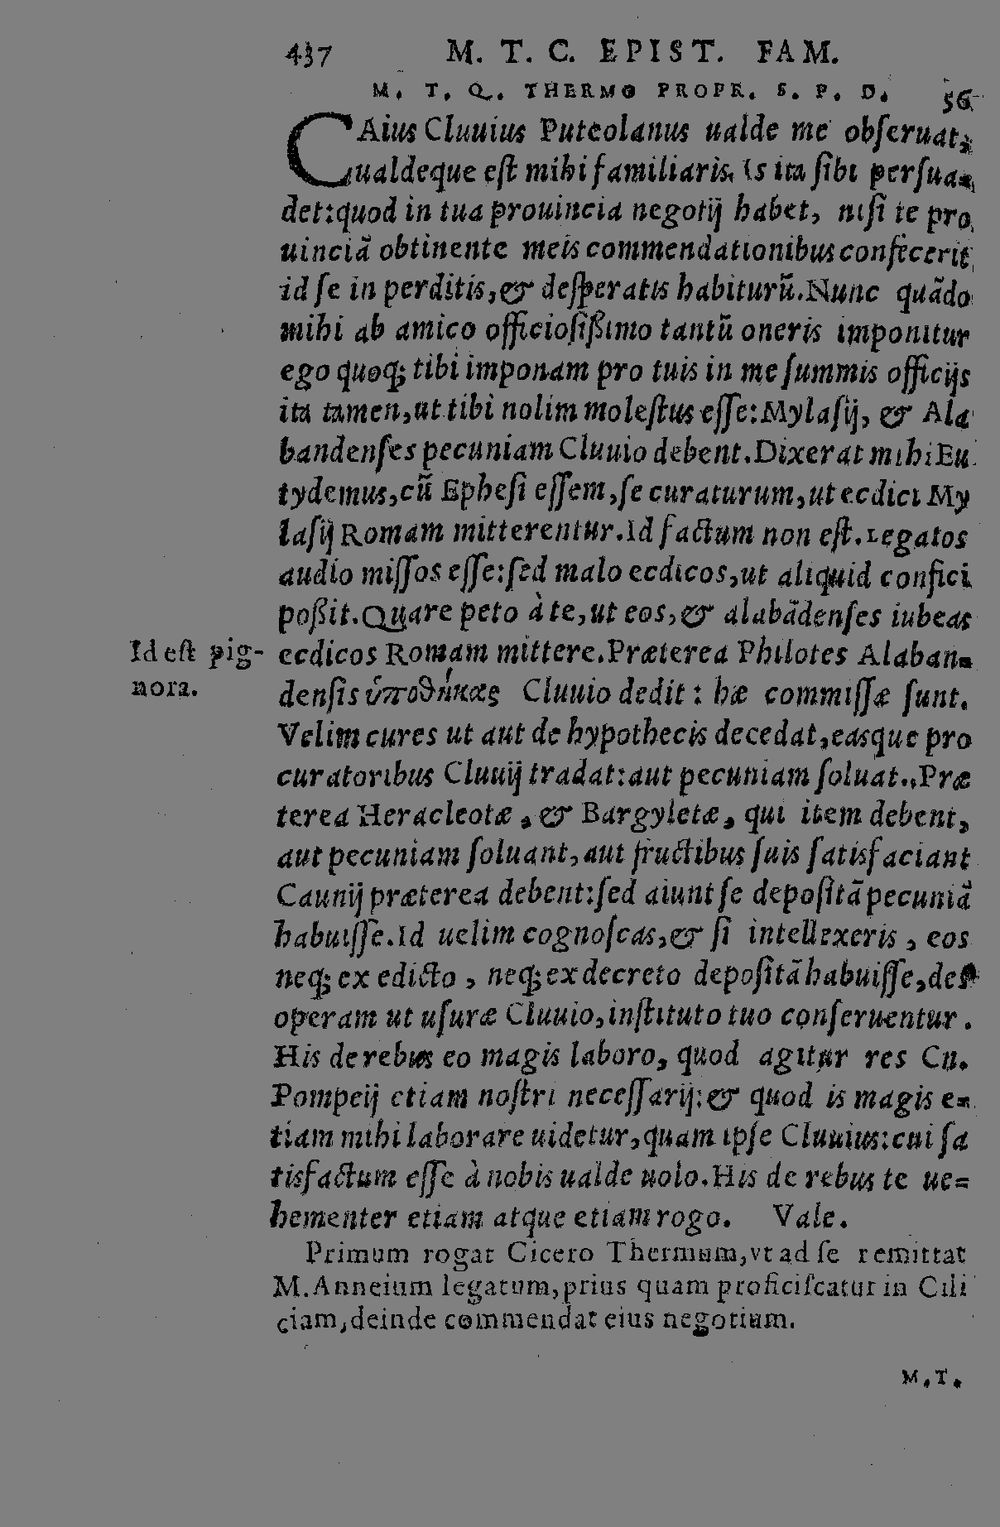 437 M. T. C. EPIST. FAM.
M. T. Q. THERMO PROPR. S. P. D. 56
CAius Cluuius Puteolanus ualde me obſeruat,
ualdeque eſt mihi familiaris. Is ita ſibi perſua-
det: quod in tua prouincia negotij habet, niſi te pro
uinciã obtinente meis commendationibus confecerit,
id ſe in perditis, & deſperatis habiturũ. Nunc quãdo
mihi ab amico officioſißimo tantũ oneris imponitur
ego quoq; tibi imponam pro tuis in me ſummis officijs
ita tamen, ut tibi nolim moleſtus eſſe: Mylaſij, & Ala
bandenſes pecuniam Cluuio debent. Dixerat mihi Eu
tydemus, cũ Epheſi eſſem, ſe curaturum, ut ecdici My
laſij Romam mitterentur. Id factum non eſt. Legatos
audio miſſos eſſe: ſed malo ecdicos, ut aliquid confici
poßit. Quare peto à te, ut eos, & alabãdenſes iubeas
ecdicos Romam mittere. Præterea Philotes Alaban-
Id eſt pig-
nora.
denſis ὑποθήκας Cluuio dedit: hæ commiſſæ ſunt.
Velim cures ut aut de hypothecis decedat, easque pro
curatoribus Cluuij tradat: aut pecuniam ſoluat. Præ
terea Heracleotæ, & Bargyletæ, qui item debent,
aut pecuniam ſoluant, aut fructibus ſuis ſatisfaciant
Caunij præterea debent: ſed aiunt ſe depoſitã pecuniã
habuiſſe. Id uelim cognoſcas, & ſi intellexeris, eos
neq; ex edicto, neq; ex decreto depoſitã habuiſſe, des
operam ut uſuræ Cluuio, inſtituto tuo conſeruentur.
His de rebus eo magis laboro, quod agitur res Cn.
Pompeij etiam noſtri neceſſarij: & quod is magis e-
tiam mihi laborare uidetur, quam ipſe Cluuius: cui ſa
tisfactum eſſe à nobis ualde uolo. His de rebus te ue=
hementer etiam atque etiam rogo. Vale.
Primum rogat Cicero Thermum, vt ad ſe remittat
M. Anneium legatum, prius quam proficiſcatur in Cili
ciam, deinde commendat eius negotium.
M. T.